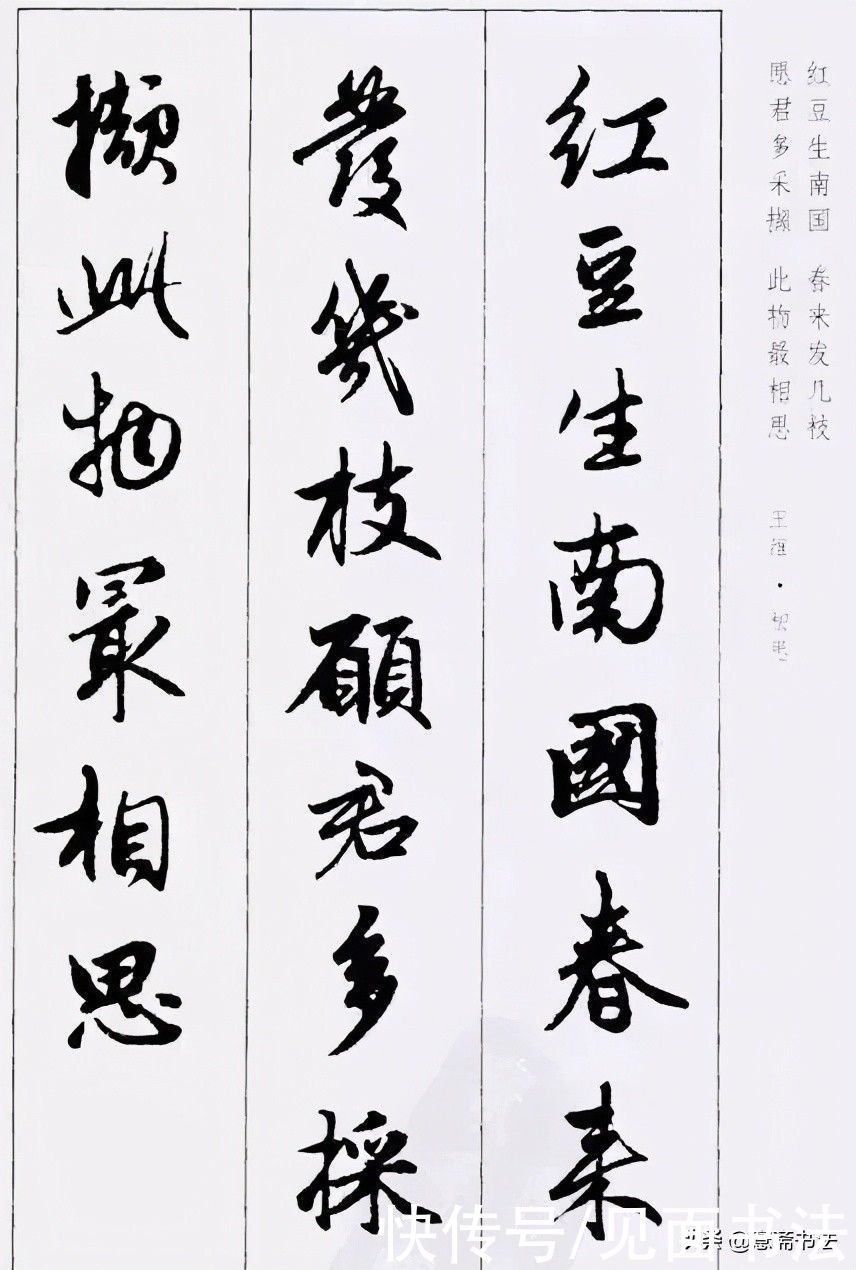 红豆生南国 春来发几枝
愿君多采撷 此物最相思 王维·相思
紅豆生南國春来
發幾枝願君多採
擷此物最相思
快传号/见面书法
头条 @慧斋书法